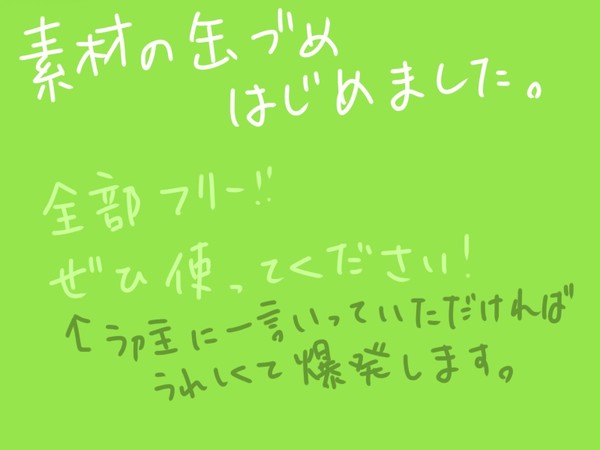 素材の缶づめ
はじめました。
全部フリー!!
ぜひ使ってください!
↑ラァ主に一言いっていただければ
うれしくて爆発します。